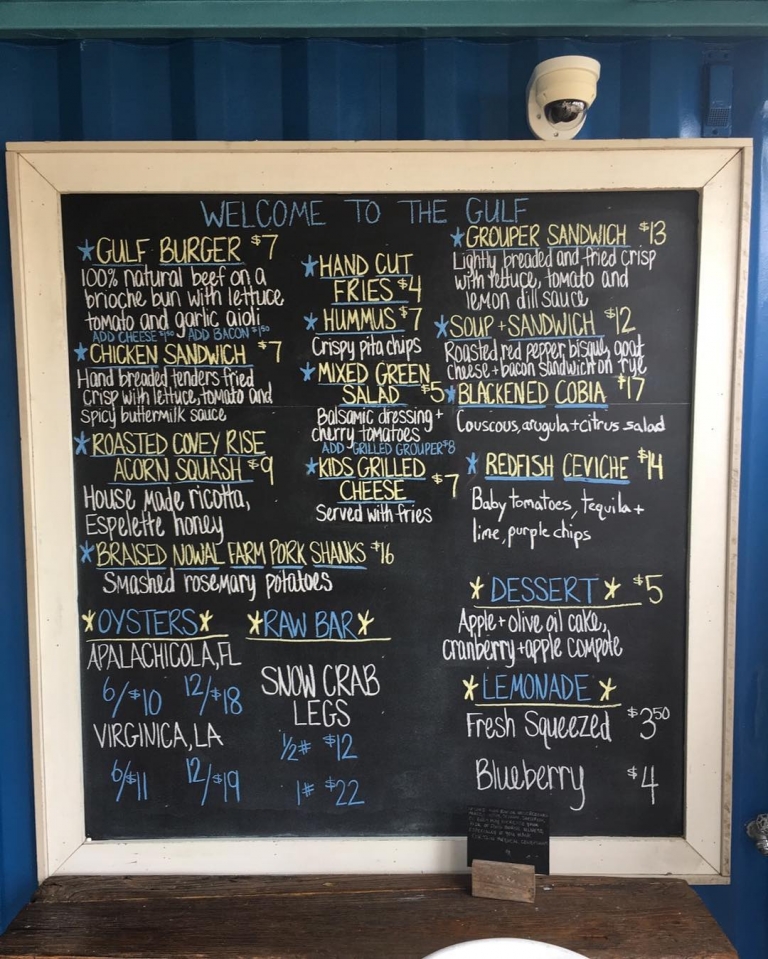 WELCOME TO THE GULF
GULF BURGER $7
100% natural beef on a
brioche bun with lettuce,
tomato and garlic aioli
ADD CHEESE $1.50 ADD BACON $1.50
CHICKEN SANDWICH $7
Hand breaded tenders fried
crisp with lettuce, tomato and
spicy buttermilk sauce
ROASTED COVEY RISE
ACORN SQUASH $9
House made ricotta,
Espelette honey
BRAISED NOWAL FARM PORK SHANKS $16
Smashed rosemary potatoes
OYSTERS
APALACHICOLA, FL
6/$10 12/$18
VIRGINICA, LA
6/$11 12/$19
RAW BAR
SNOW CRAB
LEGS
1/2# $12
1# $22
HAND CUT
FRIES $4
HUMMUS $7
Crispy pita chips
MIXED GREEN
SALAD $5
Balsamic dressing +
cherry tomatoes
ADD GRILLED GROUPER $8
KIDS GRILLED
CHEESE $7
Served with fries
GROUPER SANDWICH $13
Lightly breaded and fried crisp
with lettuce, tomato and
lemon dill sauce
SOUP + SANDWICH $12
Roasted red pepper bisque, goat
cheese + bacon sandwich on rye
BLACKENED COBIA $17
Couscous, arugula + citrus salad
REDFISH CEVICHE $14
Baby tomatoes, tequila +
lime, purple chips
DESSERT $5
Apple + olive oil cake,
cranberry + apple compote
LEMONADE
Fresh Squeezed $3.50
Blueberry $4